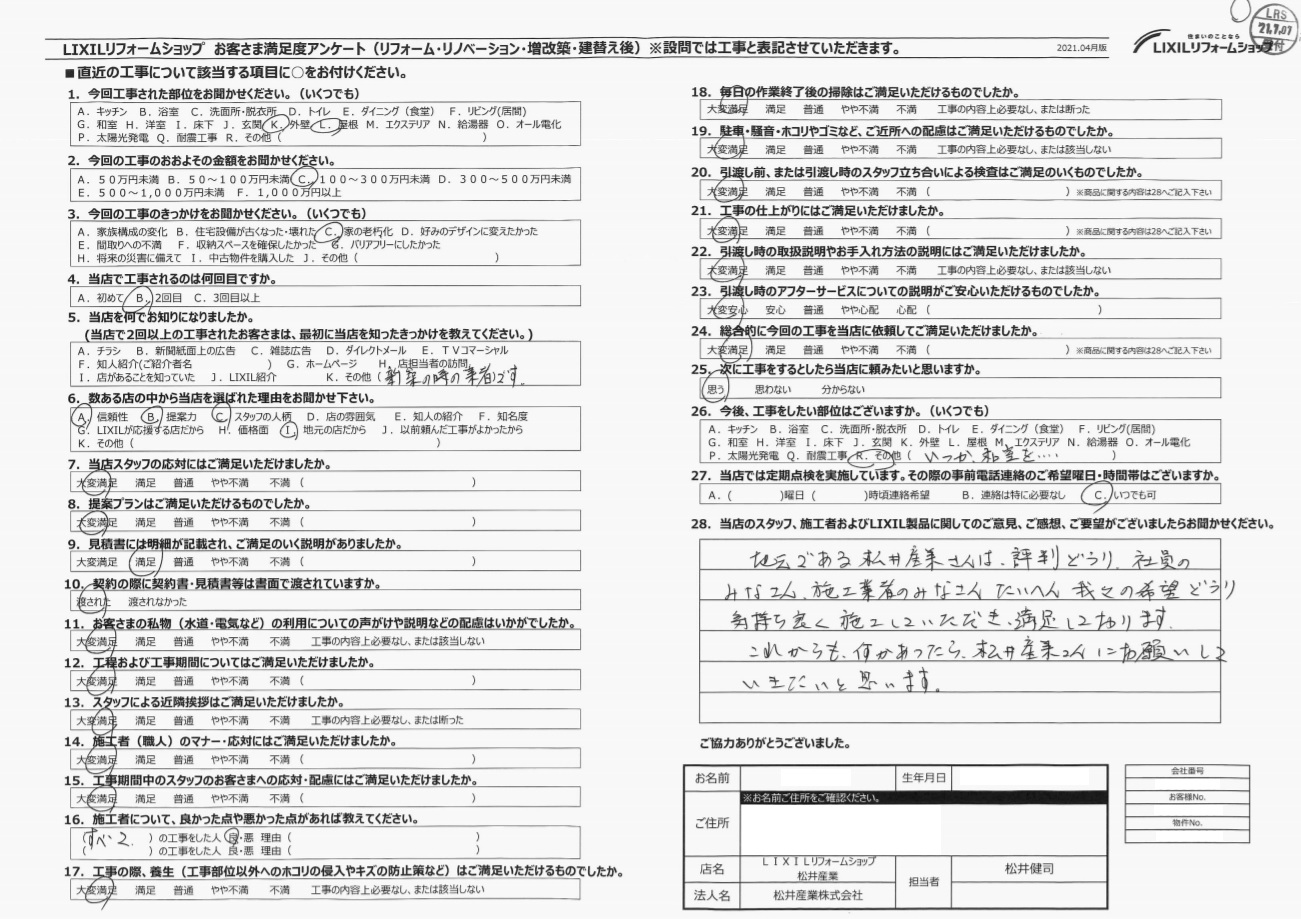 LIXILリフォームショップ お客さま満足度アンケート（リフォーム・リノベーション・増改築・建替え後）※設問では工事と表記させていただきます。
2021.04月版
住まいのことなら
LIXILリフォームショップ
LRS
21.7.07
受付
■直近の工事について該当する項目に○をお付けください。
1．今回工事された部位をお聞かせください。（いくつでも）
A．キッチン B．浴室 C．洗面所・脱衣所 D．トイレ E．ダイニング（食堂） F．リビング(居間)
G．和室 H．洋室 I．床下 J．玄関 K．外壁 L．屋根 M．エクステリア N．給湯器 O．オール電化
P．太陽光発電 Q．耐震工事 R．その他（ ）
2．今回の工事のおおよその金額をお聞かせください。
A．50万円未満 B．50～100万円未満 C．100～300万円未満 D．300～500万円未満
E．500～1,000万円未満 F．1,000万円以上
3．今回の工事のきっかけをお聞かせください。（いくつでも）
A．家族構成の変化 B．住宅設備が古くなった・壊れた C．家の老朽化 D．好みのデザインに変えたかった
E．間取りへの不満 F．収納スペースを確保したかった G．バリアフリーにしたかった
H．将来の災害に備えて I．中古物件を購入した J．その他（ ）
4．当店で工事されるのは何回目ですか。
A．初めて B．2回目 C．3回目以上
5．当店を何でお知りになりましたか。
(当店で2回以上の工事されたお客さまは、最初に当店を知ったきっかけを教えてください。)
A．チラシ B．新聞紙面上の広告 C．雑誌広告 D．ダイレクトメール E．TVコマーシャル
F．知人紹介(ご紹介者名 ) G．ホームページ H．店担当者の訪問
I．店があることを知っていた J．LIXIL紹介 K．その他（新築の時の業者)です。
6．数ある店の中から当店を選ばれた理由をお聞かせ下さい。
A．信頼性 B．提案力 C．スタッフの人柄 D．店の雰囲気 E．知人の紹介 F．知名度
G．LIXILが応援する店だから H．価格面 I．地元の店だから J．以前頼んだ工事がよかったから
K．その他（ ）
7．当店スタッフの応対にはご満足いただけましたか。
大変満足 満足 普通 やや不満 不満 （ ）
8．提案プランはご満足いただけるものでしたか。
大変満足 満足 普通 やや不満 不満 （ ）
9．見積書には明細が記載され、ご満足のいく説明がありましたか。
大変満足 満足 普通 やや不満 不満 （ ）
10．契約の際に契約書・見積書等は書面で渡されていますか。
渡された 渡されなかった
11．お客さまの私物（水道・電気など）の利用についての声がけや説明などの配慮はいかがでしたか。
大変満足 満足 普通 やや不満 不満 工事の内容上必要なし、または該当しない
12．工程および工事期間についてはご満足いただけましたか。
大変満足 満足 普通 やや不満 不満 （ ）
13．スタッフによる近隣挨拶はご満足いただけましたか。
大変満足 満足 普通 やや不満 不満 工事の内容上必要なし、または断った
14．施工者（職人）のマナー・応対にはご満足いただけましたか。
大変満足 満足 普通 やや不満 不満 （ ）
15．工事期間中のスタッフのお客さまへの応対・配慮にはご満足いただけましたか。
大変満足 満足 普通 やや不満 不満 （ ）
16．施工者について、良かった点や悪かった点があれば教えてください。
（すべて ）の工事をした人 良・悪 理由（ ）
（ ）の工事をした人 良・悪 理由（ ）
17．工事の際、養生（工事部位以外へのホコリの侵入やキズの防止策など）はご満足いただけるものでしたか。
大変満足 満足 普通 やや不満 不満 工事の内容上必要なし、または該当しない
18．毎日の作業終了後の掃除はご満足いただけるものでしたか。
大変満足 満足 普通 やや不満 不満 工事の内容上必要なし、または断った
19．駐車・騒音・ホコリやゴミなど、ご近所への配慮はご満足いただけるものでしたか。
大変満足 満足 普通 やや不満 不満 工事の内容上必要なし、または該当しない
20．引渡し前、または引渡し時のスタッフ立ち合いによる検査はご満足のいくものでしたか。
大変満足 満足 普通 やや不満 不満 （ ）※商品に関する内容は28へご記入下さい
21．工事の仕上がりにはご満足いただけましたか。
大変満足 満足 普通 やや不満 不満 （ ）※商品に関する内容は28へご記入下さい
22．引渡し時の取扱説明やお手入れ方法の説明にはご満足いただけましたか。
大変満足 満足 普通 やや不満 不満 工事の内容上必要なし、または該当しない
23．引渡し時のアフターサービスについての説明がご安心いただけるものでしたか。
大変安心 安心 普通 やや心配 心配 （ ）
24．総合的に今回の工事を当店に依頼してご満足いただけましたか。
大変満足 満足 普通 やや不満 不満 （ ）※商品に関する内容は28へご記入下さい
25．次に工事をするとしたら当店に頼みたいと思いますか。
思う 思わない 分からない
26．今後、工事をしたい部位はございますか。（いくつでも）
A．キッチン B．浴室 C．洗面所・脱衣所 D．トイレ E．ダイニング（食堂） F．リビング(居間)
G．和室 H．洋室 I．床下 J．玄関 K．外壁 L．屋根 M．エクステリア N．給湯器 O．オール電化
P．太陽光発電 Q．耐震工事 R．その他（いつか 和室を…. ）
27．当店では定期点検を実施しています。その際の事前電話連絡のご希望曜日・時間帯はございますか。
A．( )曜日（ )時頃連絡希望 B．連絡は特に必要なし C．いつでも可
28．当店のスタッフ、施工者およびLIXIL製品に関してのご意見、ご感想、ご要望がございましたらお聞かせください。
地元である松井産業さんは、評判どうり、社員の
みなさん、施工業者のみなさん たいへん 我々の希望どうり
気持ち良く施工していただき、満足しております。
これからも、何かあったら、松井産業さんにお願いして
いきたいと思います。
ご協力ありがとうございました。
お名前 生年月日
※お名前ご住所をご確認ください。
ご住所
店名 LIXILリフォームショップ 松井産業 担当者 松井健司
法人名 松井産業株式会社
会社番号
お客様No.
物件No.